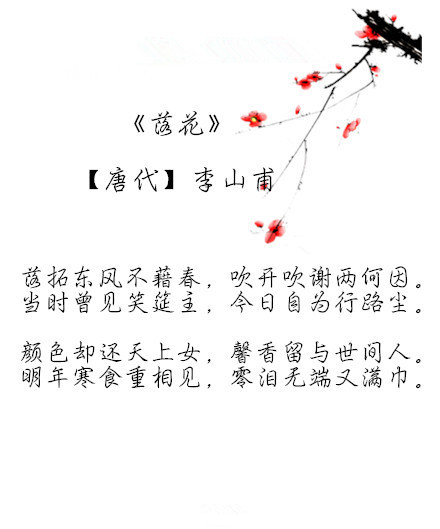 《落花》
【唐代】李山甫
落拓东风不藉春，吹开吹谢两何因。
当时曾见笑筵主，今日自为行路尘。
颜色却还天上女，馨香留与世间人。
明年寒食重相见，零泪无端又满巾。